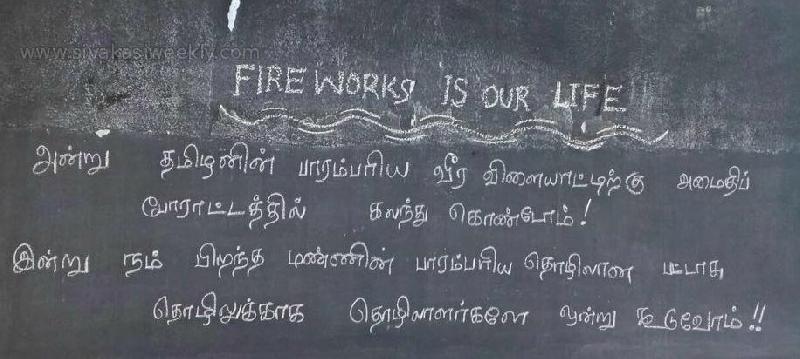 www.sivakasiweekly.com
FIRE WORKS IS OUR LIFE
அன்று தமிழனின் பாரம்பரிய வீர விளையாட்டிற்கு அமைதிப்
போராட்டத்தில் கலந்து கொண்டோம்!
இன்று நம் பிறந்த மண்ணின் பாரம்பரிய தொழிலான பட்டாசு
தொழிலுக்காக தொழிலாளர்களே ஒன்று கூடுவோம்!!